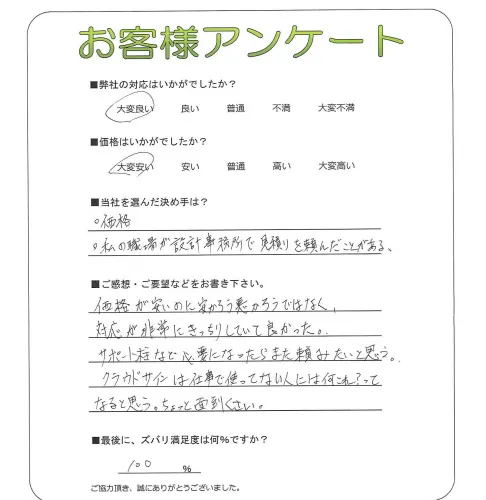 お客様アンケート
■弊社の対応はいかがでしたか？
大変良い 良い 普通 不満 大変不満
■価格はいかがでしたか？
大変安い 安い 普通 高い 大変高い
■当社を選んだ決め手は？
○価格
○私の職場が設計事務所で見積りを頼んだことがある、
■ご感想・ご要望などをお書き下さい。
価格が安いのに安かろう悪かろうではなく、
対応が非常にきっちりしていて良かった。
サポート柱など必要になったらまた頼みたいと思う。
クラウドサインは仕事で使ってない人には何これ？って
なると思う。ちょっと面倒くさい。
■最後に、ズバリ満足度は何％ですか？
100 ％
ご協力頂き、誠にありがとうございました。